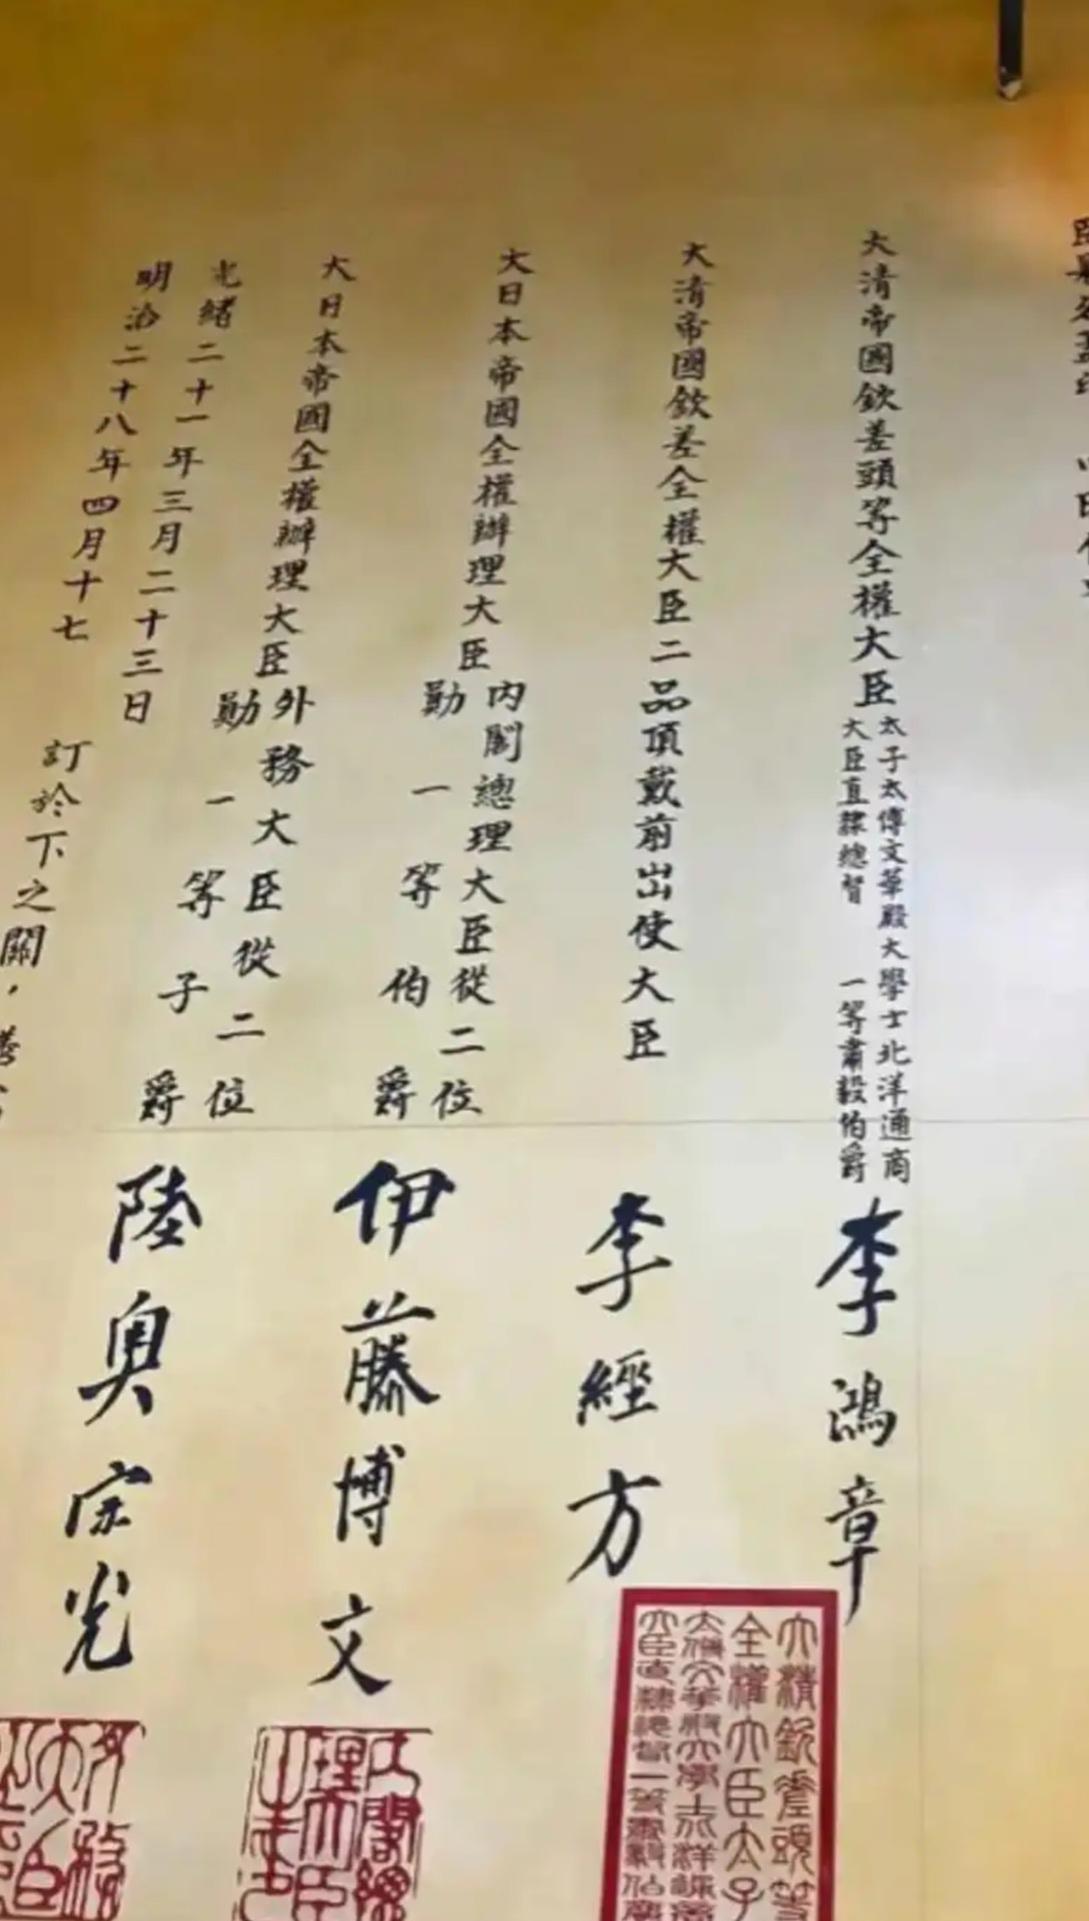 大清帝國欽差頭等全權大臣
太子太傅文華殿大學士北洋通商
大臣直隸總督 一等肅毅伯爵
李鴻章
大清帝國欽差全權大臣二品頂戴前出使大臣
李經方
大日本帝國全權辦理大臣
內閣總理大臣從二位
勛一等伯爵
伊藤博文
大日本帝國全權辦理大臣
外務大臣從二位
勛一等子爵
陸奧宗光
光緒二十一年三月二十三日
明治二十八年四月十七
訂於下之關，
大清欽差頭等
全權大臣太子
太傅文華殿大學士北洋通商
大臣直隸總督一等肅毅伯爵
內閣總
理大臣
之印
外務
大臣